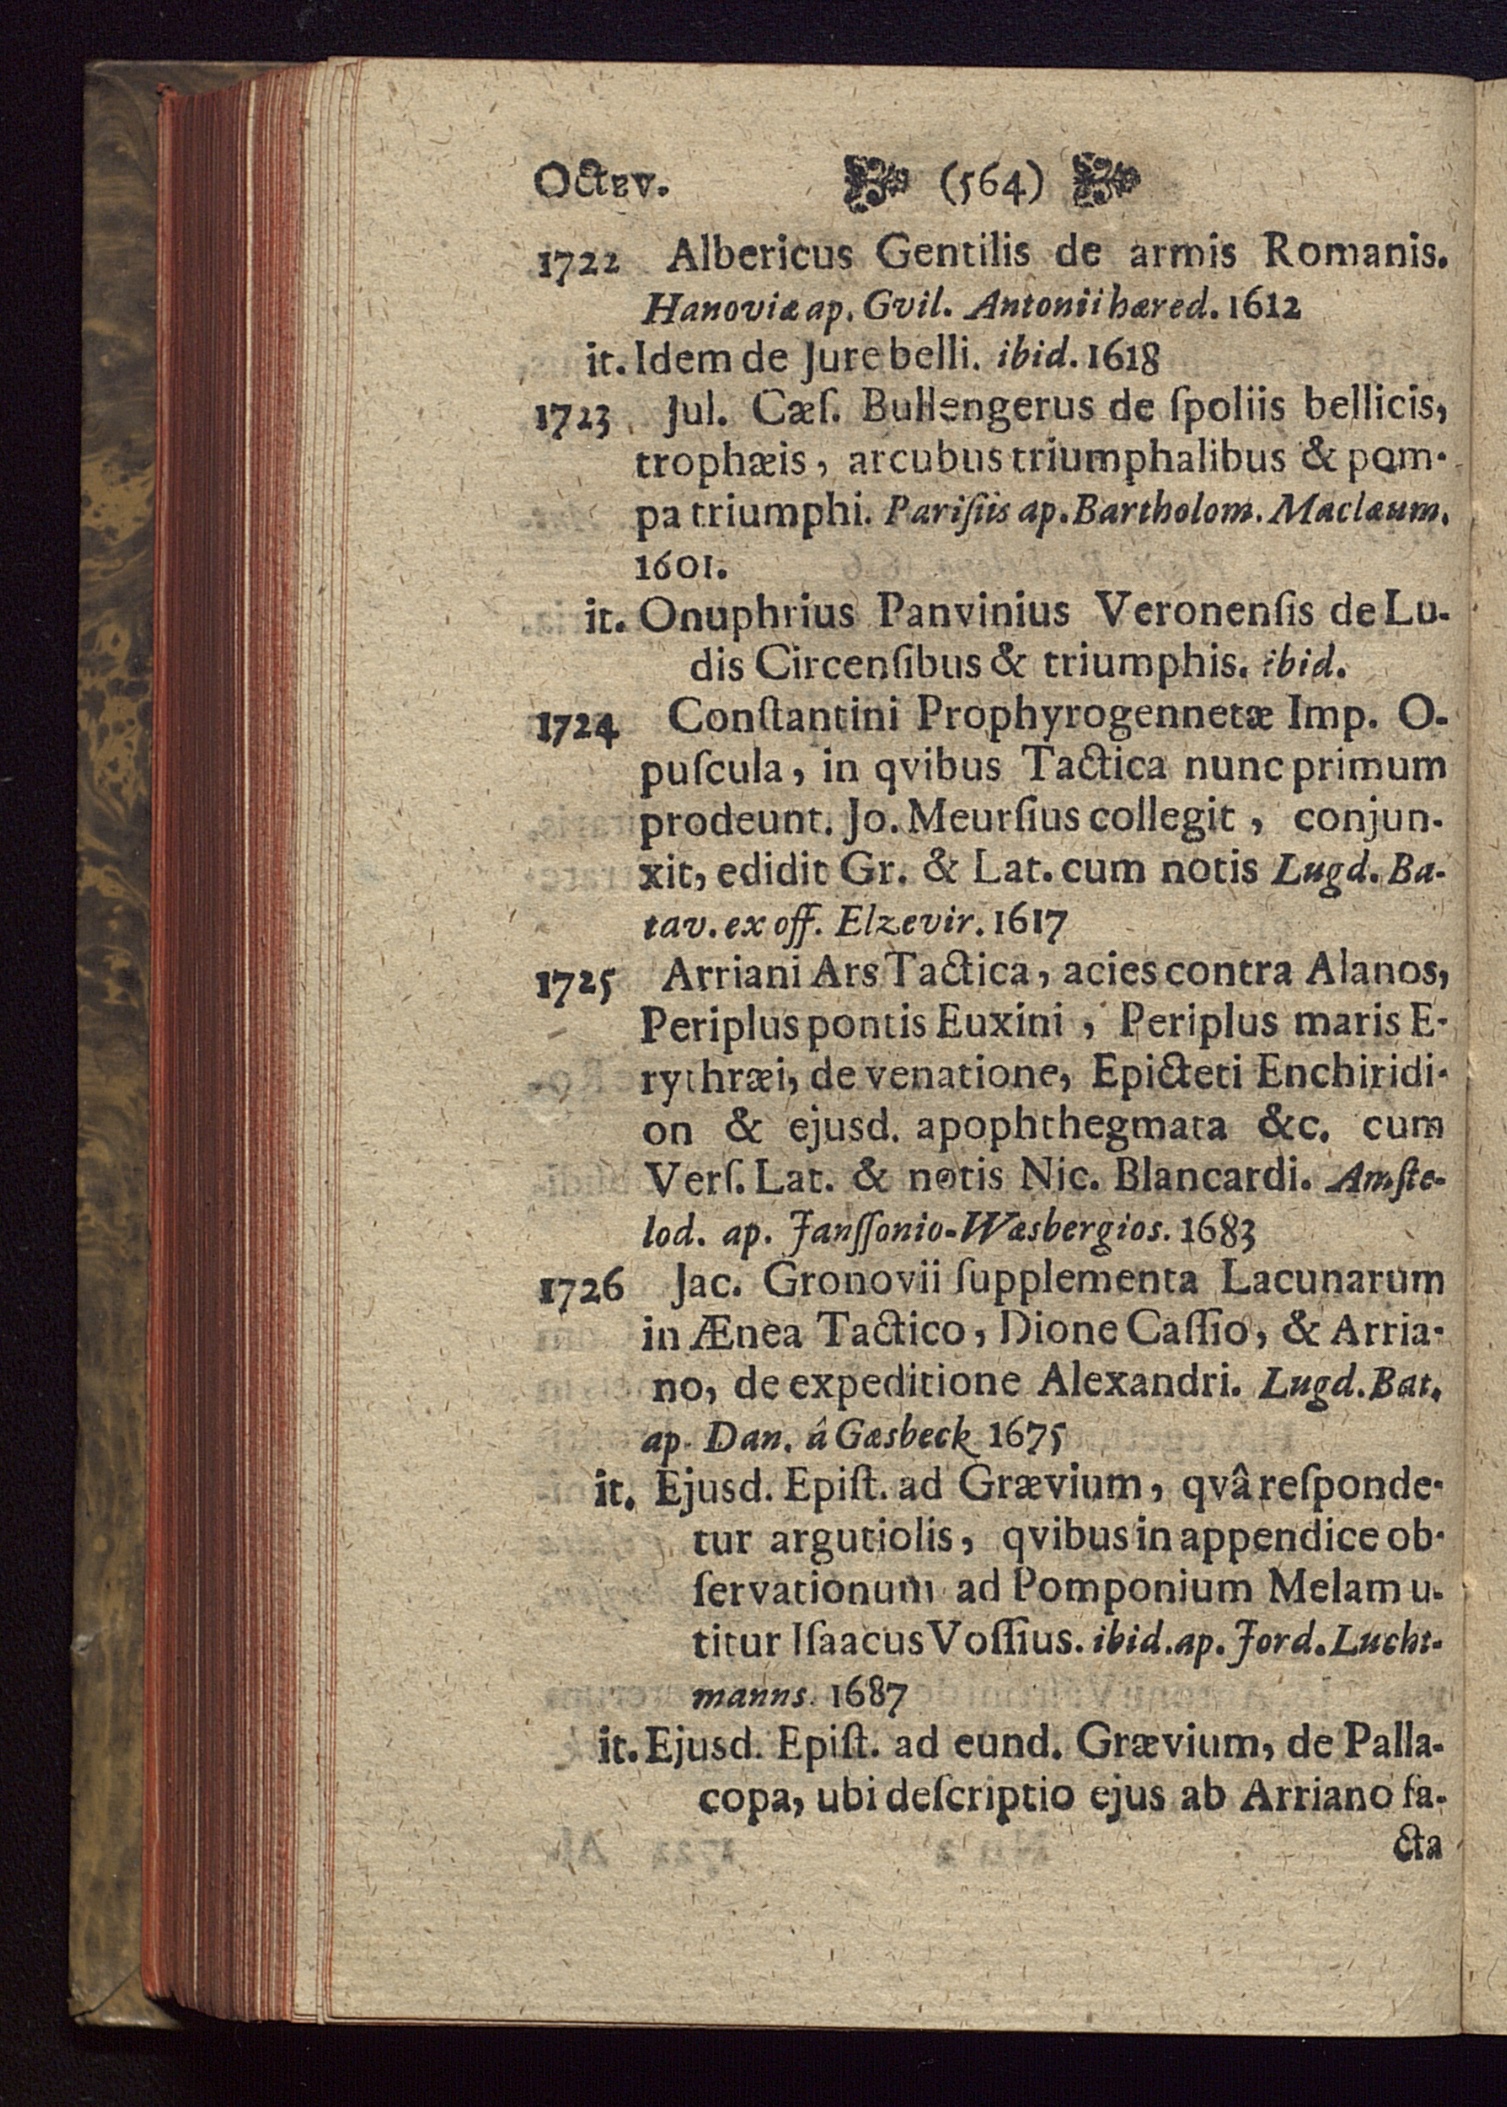 Octav. (564)
1722 Albericus Gentilis de armis Romanis.
Hanoviæ ap. Gvil. Antonii hæred. 1612
it. Idem de Jure belli. ibid. 1618
1723 Jul. Cæſ. Bullengerus de ſpoliis bellicis,
trophæis, arcubus triumphalibus & pom-
pa triumphi. Pariſiis ap. Bartholom. Maclæum.
1601.
it. Onuphrius Panvinius Veronenſis de Lu-
dis Circenſibus & triumphis. ibid.
1724 Conſtantini Prophyrogennetæ Imp. O-
puſcula, in qvibus Tactica nunc primum
prodeunt. Jo. Meurſius collegit, conjun-
xit, edidit Gr. & Lat. cum notis Lugd. Ba-
tav. ex off. Elzevir. 1617
1725 Arriani Ars Tactica, acies contra Alanos,
Periplus pontis Euxini, Periplus maris E-
rythræi, de venatione, Epicteti Enchiridi-
on & ejusd. apophthegmata &c. cum
Verſ. Lat. & notis Nic. Blancardi. Amſte-
lod. ap. Janſſonio-Wæsbergios. 1683
1726 Jac. Gronovii ſupplementa Lacunarum
in Ænea Tactico, Dione Caſſio, & Arria-
no, de expeditione Alexandri. Lugd. Bat.
ap. Dan. â Gæsbeck 1675
it. Ejusd. Epiſt. ad Grævium, qvâ reſponde-
tur argutiolis, qvibus in appendice ob-
ſervationum ad Pomponium Melam u-
titur Iſaacus Voſſius. ibid. ap. Jord. Lucht-
manns. 1687
it. Ejusd. Epiſt. ad eund. Grævium, de Palla-
copa, ubi deſcriptio ejus ab Arriano fa-
cta